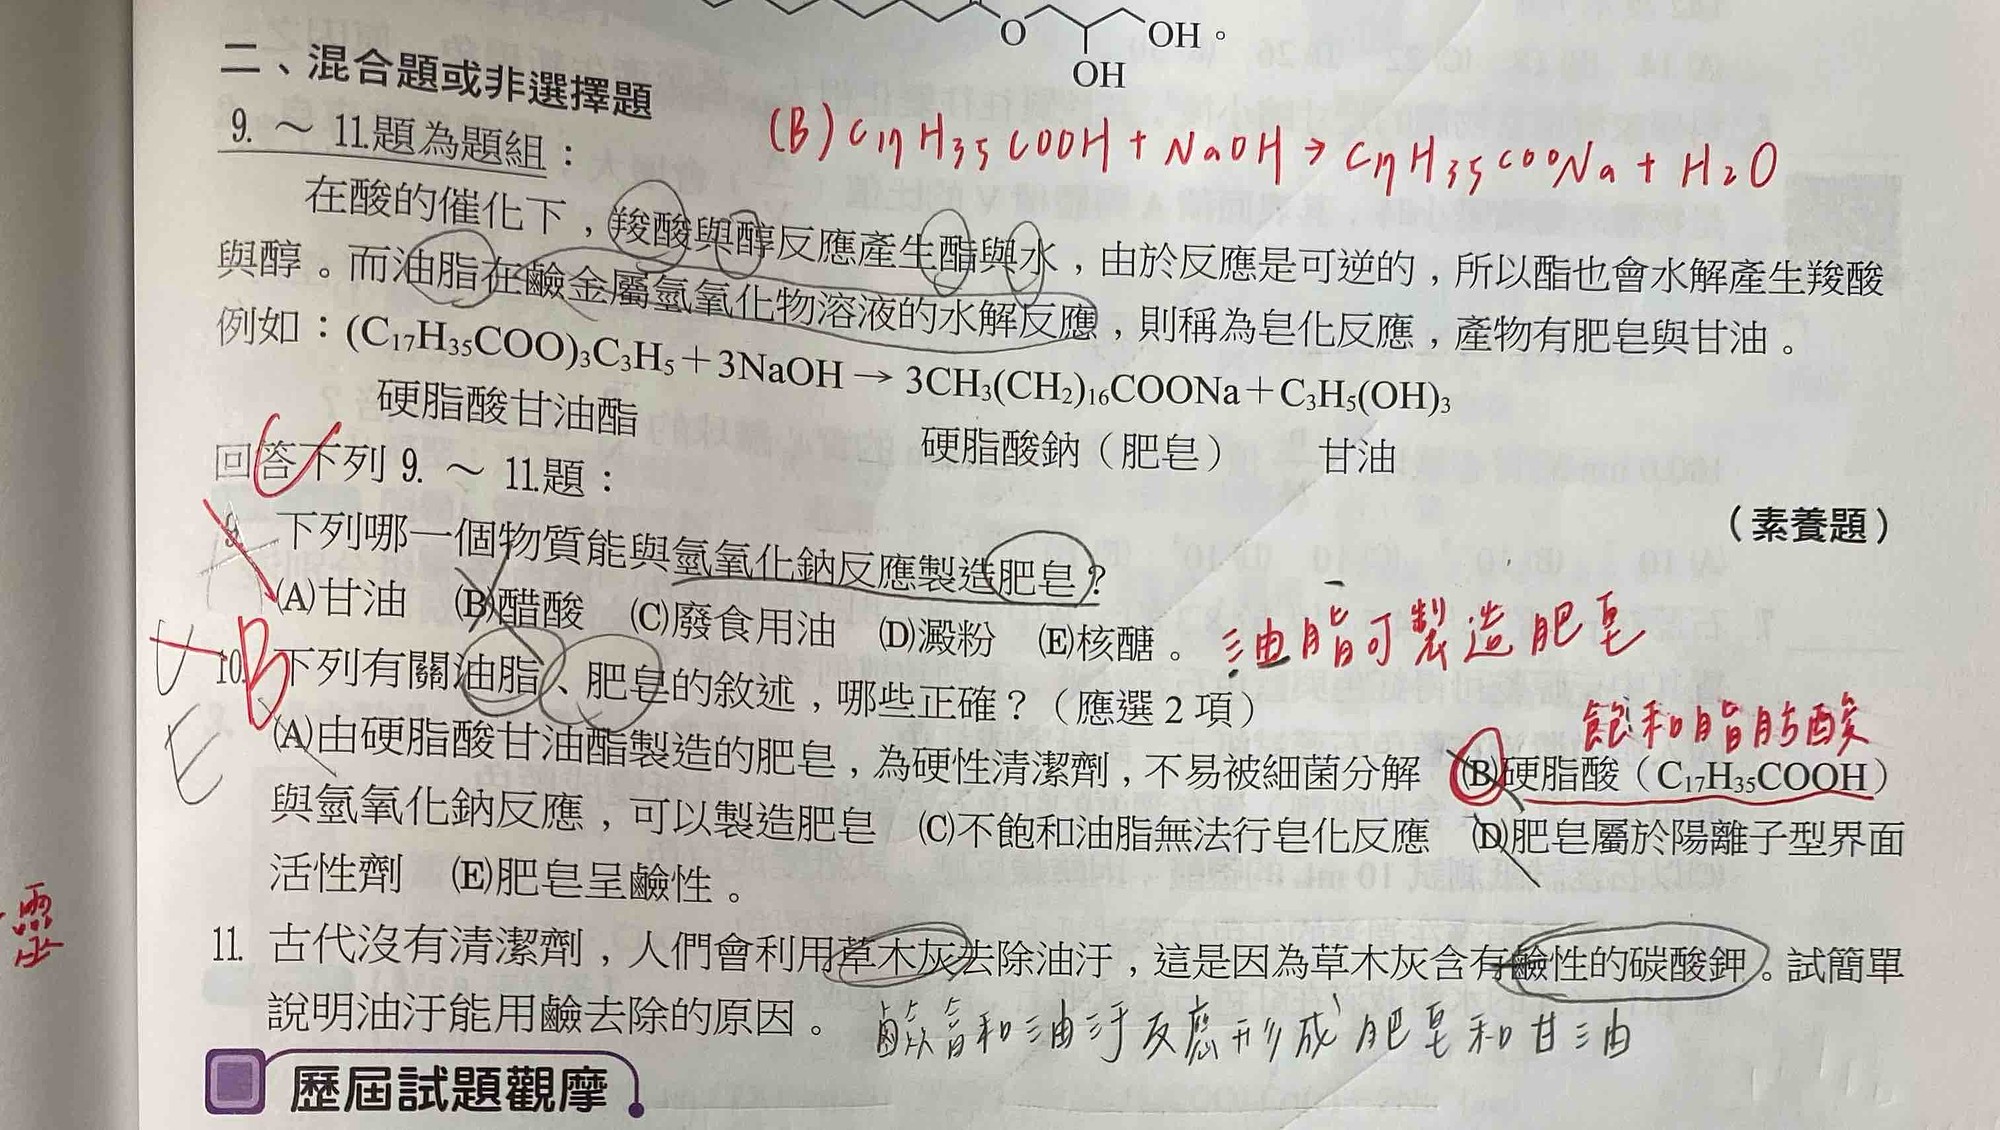 O OH。
OH
二、混合題或非選擇題
(B) C17H35COOH + NaOH → C17H35COONa + H2O
9. ～ 11.題為題組：
在酸的催化下，羧酸與醇反應產生酯與水，由於反應是可逆的，所以酯也會水解產生羧酸
與醇。而油脂在鹼金屬氫氧化物溶液的水解反應，則稱為皂化反應，產物有肥皂與甘油。
例如：(C17H35COO)3C3H5＋3NaOH → 3CH3(CH2)16COONa＋C3H5(OH)3
硬脂酸甘油酯 硬脂酸鈉（肥皂） 甘油
回答下列 9. ～ 11.題：
（素養題）
C
A
9. 下列哪一個物質能與氫氧化鈉反應製造肥皂？
(A)甘油 (B)醋酸 (C)廢食用油 (D)澱粉 (E)核醣。
油脂可製造肥皂
B
E
10. 下列有關油脂、肥皂的敘述，哪些正確？（應選 2 項）
飽和脂肪酸
(A)由硬脂酸甘油酯製造的肥皂，為硬性清潔劑，不易被細菌分解 (B)硬脂酸（C17H35COOH）
與氫氧化鈉反應，可以製造肥皂 (C)不飽和油脂無法行皂化反應 (D)肥皂屬於陽離子型界面
活性劑 (E)肥皂呈鹼性。
11. 古代沒有清潔劑，人們會利用草木灰去除油汙，這是因為草木灰含有鹼性的碳酸鉀。試簡單
說明油汙能用鹼去除的原因。
和油汙反應形成肥皂和甘油
歷屆試題觀摩